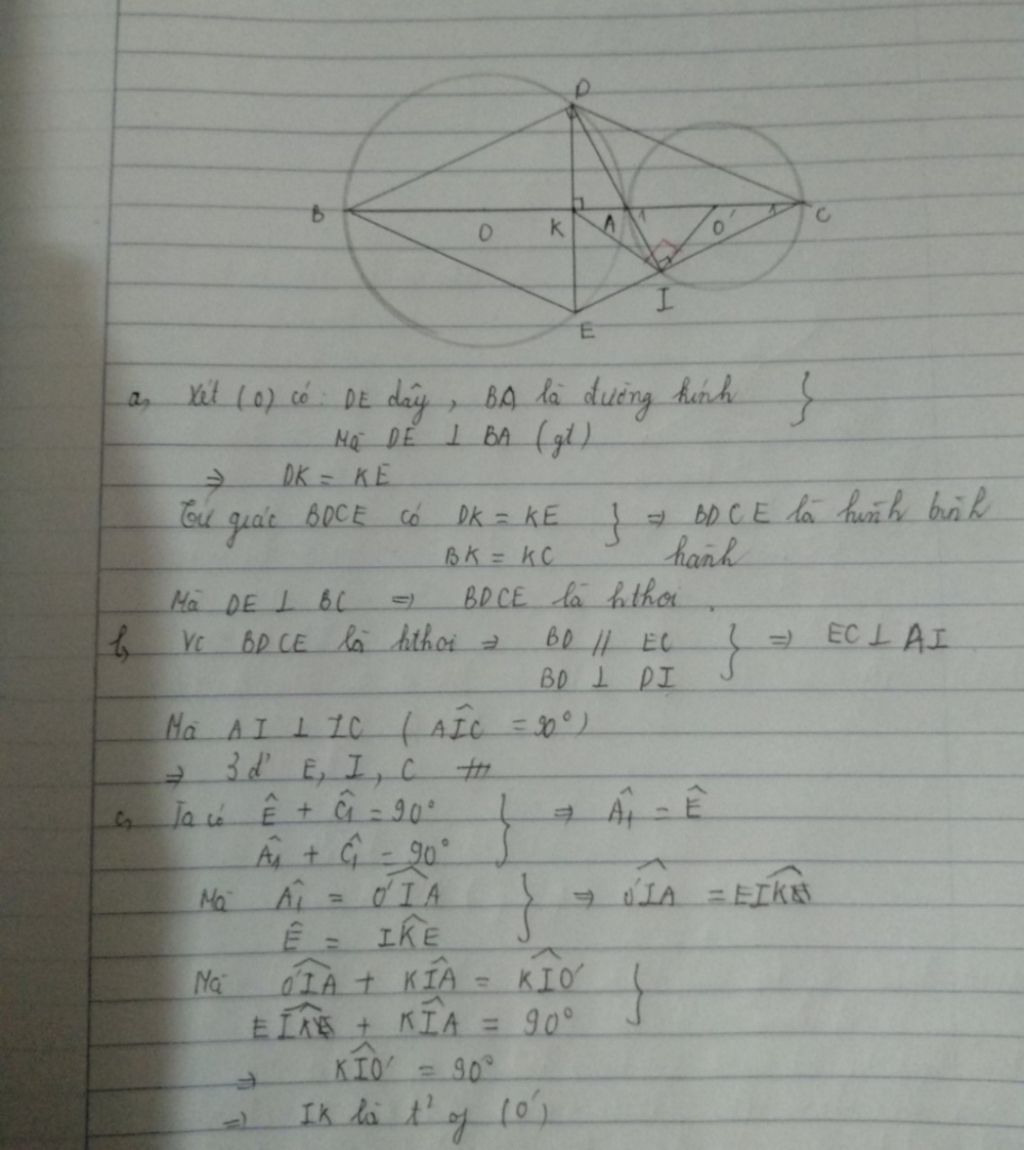 D
B
O
K
A
1
O'
1
C
I
E
a, Xét (O) có: DE dây, BA là đường kính }
Mà DE ⊥ BA (gt)
⇒ DK = KE
Tứ giác BDCE có DK = KE } ⇒ BDCE là hình bình
BK = KC hành
Mà DE ⊥ BC ⇒ BDCE là hthoi.
b, Vì BDCE là hthoi ⇒ BD // EC } ⇒ EC ⊥ AI
BD ⊥ DI
Mà AI ⊥ IC (AÎC = 90°)
⇒ 3 đ' E, I, C
c, Ta có Ê + Ĉ₁ = 90° } ⇒ Â₁ = Ê
Â₁ + Ĉ₁ = 90°
Mà Â₁ = O'ÎA } ⇒ O'ÎA = EÎK
Ê = IK̂E
Mà O'ÎA + KÎA = KÎO' }
EÎK + KÎA = 90°
⇒ KÎO' = 90°
⇒ IK là t² of (O')